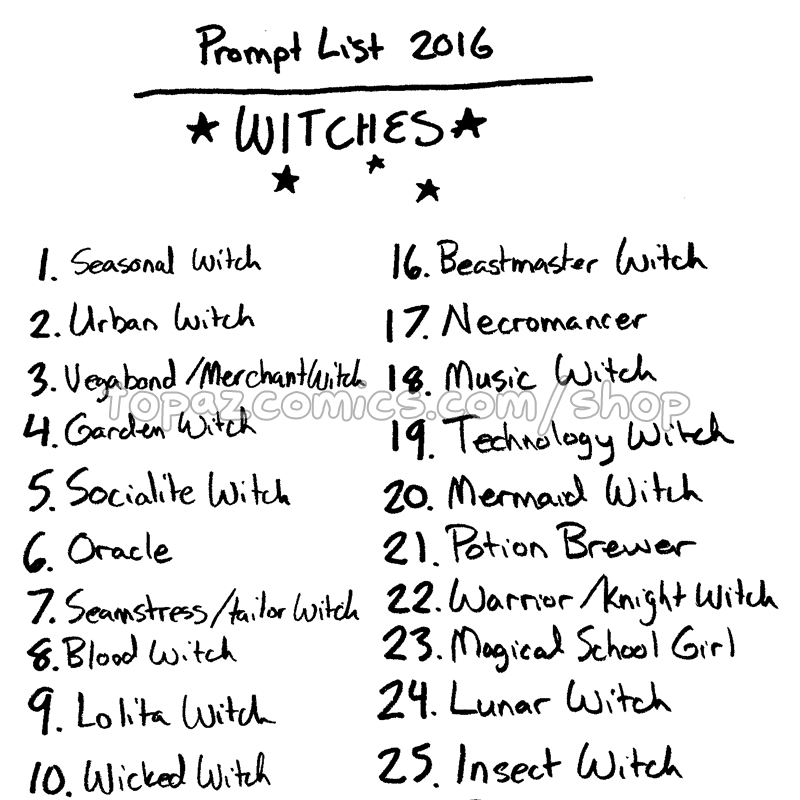 Prompt List 2016
WITCHES
1. Seasonal Witch
2. Urban Witch
3. Vegabond/Merchant Witch
4. Garden Witch
5. Socialite Witch
6. Oracle
7. Seamstress/tailor Witch
8. Blood Witch
9. Lolita Witch
10. Wicked Witch
16. Beastmaster Witch
17. Necromancer
18. Music Witch
19. Technology Witch
20. Mermaid Witch
21. Potion Brewer
22. Warrior/Knight Witch
23. Magical School Girl
24. Lunar Witch
25. Insect Witch
Topazcomics.com/shop